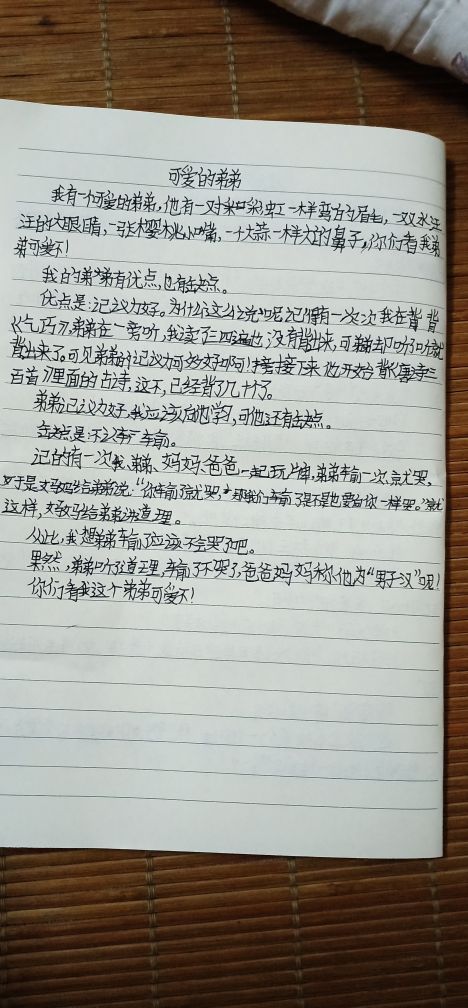 可爱的弟弟
我有一个可爱的弟弟，他有一对和彩虹一样弯的的眉毛，一双水汪
汪的大眼睛，一张樱桃小嘴，一个大蒜一样大的鼻子，你们看我弟
弟可爱不！
我的弟弟有优点，也有缺点。
优点是：记议力好。为什么这么说呢？记得有一次次我在背背
《乞巧》，弟弟在一旁听，我读了三四遍也没有背出来，可弟弟却听听就
背出来了。可见弟弟的记议力可好好啊！接接下来他开始背《唐诗三
百首》里面的古诗，这不，已经背了几十个了。
弟弟记议力好，我应该向他学习，可他还有缺点。
缺点是：不认输。
记的有一次我、弟弟、妈妈、爸爸一起玩牌，弟弟输一次，就哭，
于是妈妈给弟弟说：“你输了就哭，那我们输了是不是也要和你一样哭。”就
这样，妈妈给弟弟讲道理。
从此，我想弟弟输了应该不会哭了吧。
果然，弟弟听了道理，输了不哭了，爸爸妈妈称他为“男子汉”呢！
你们看我这个弟弟可爱不！